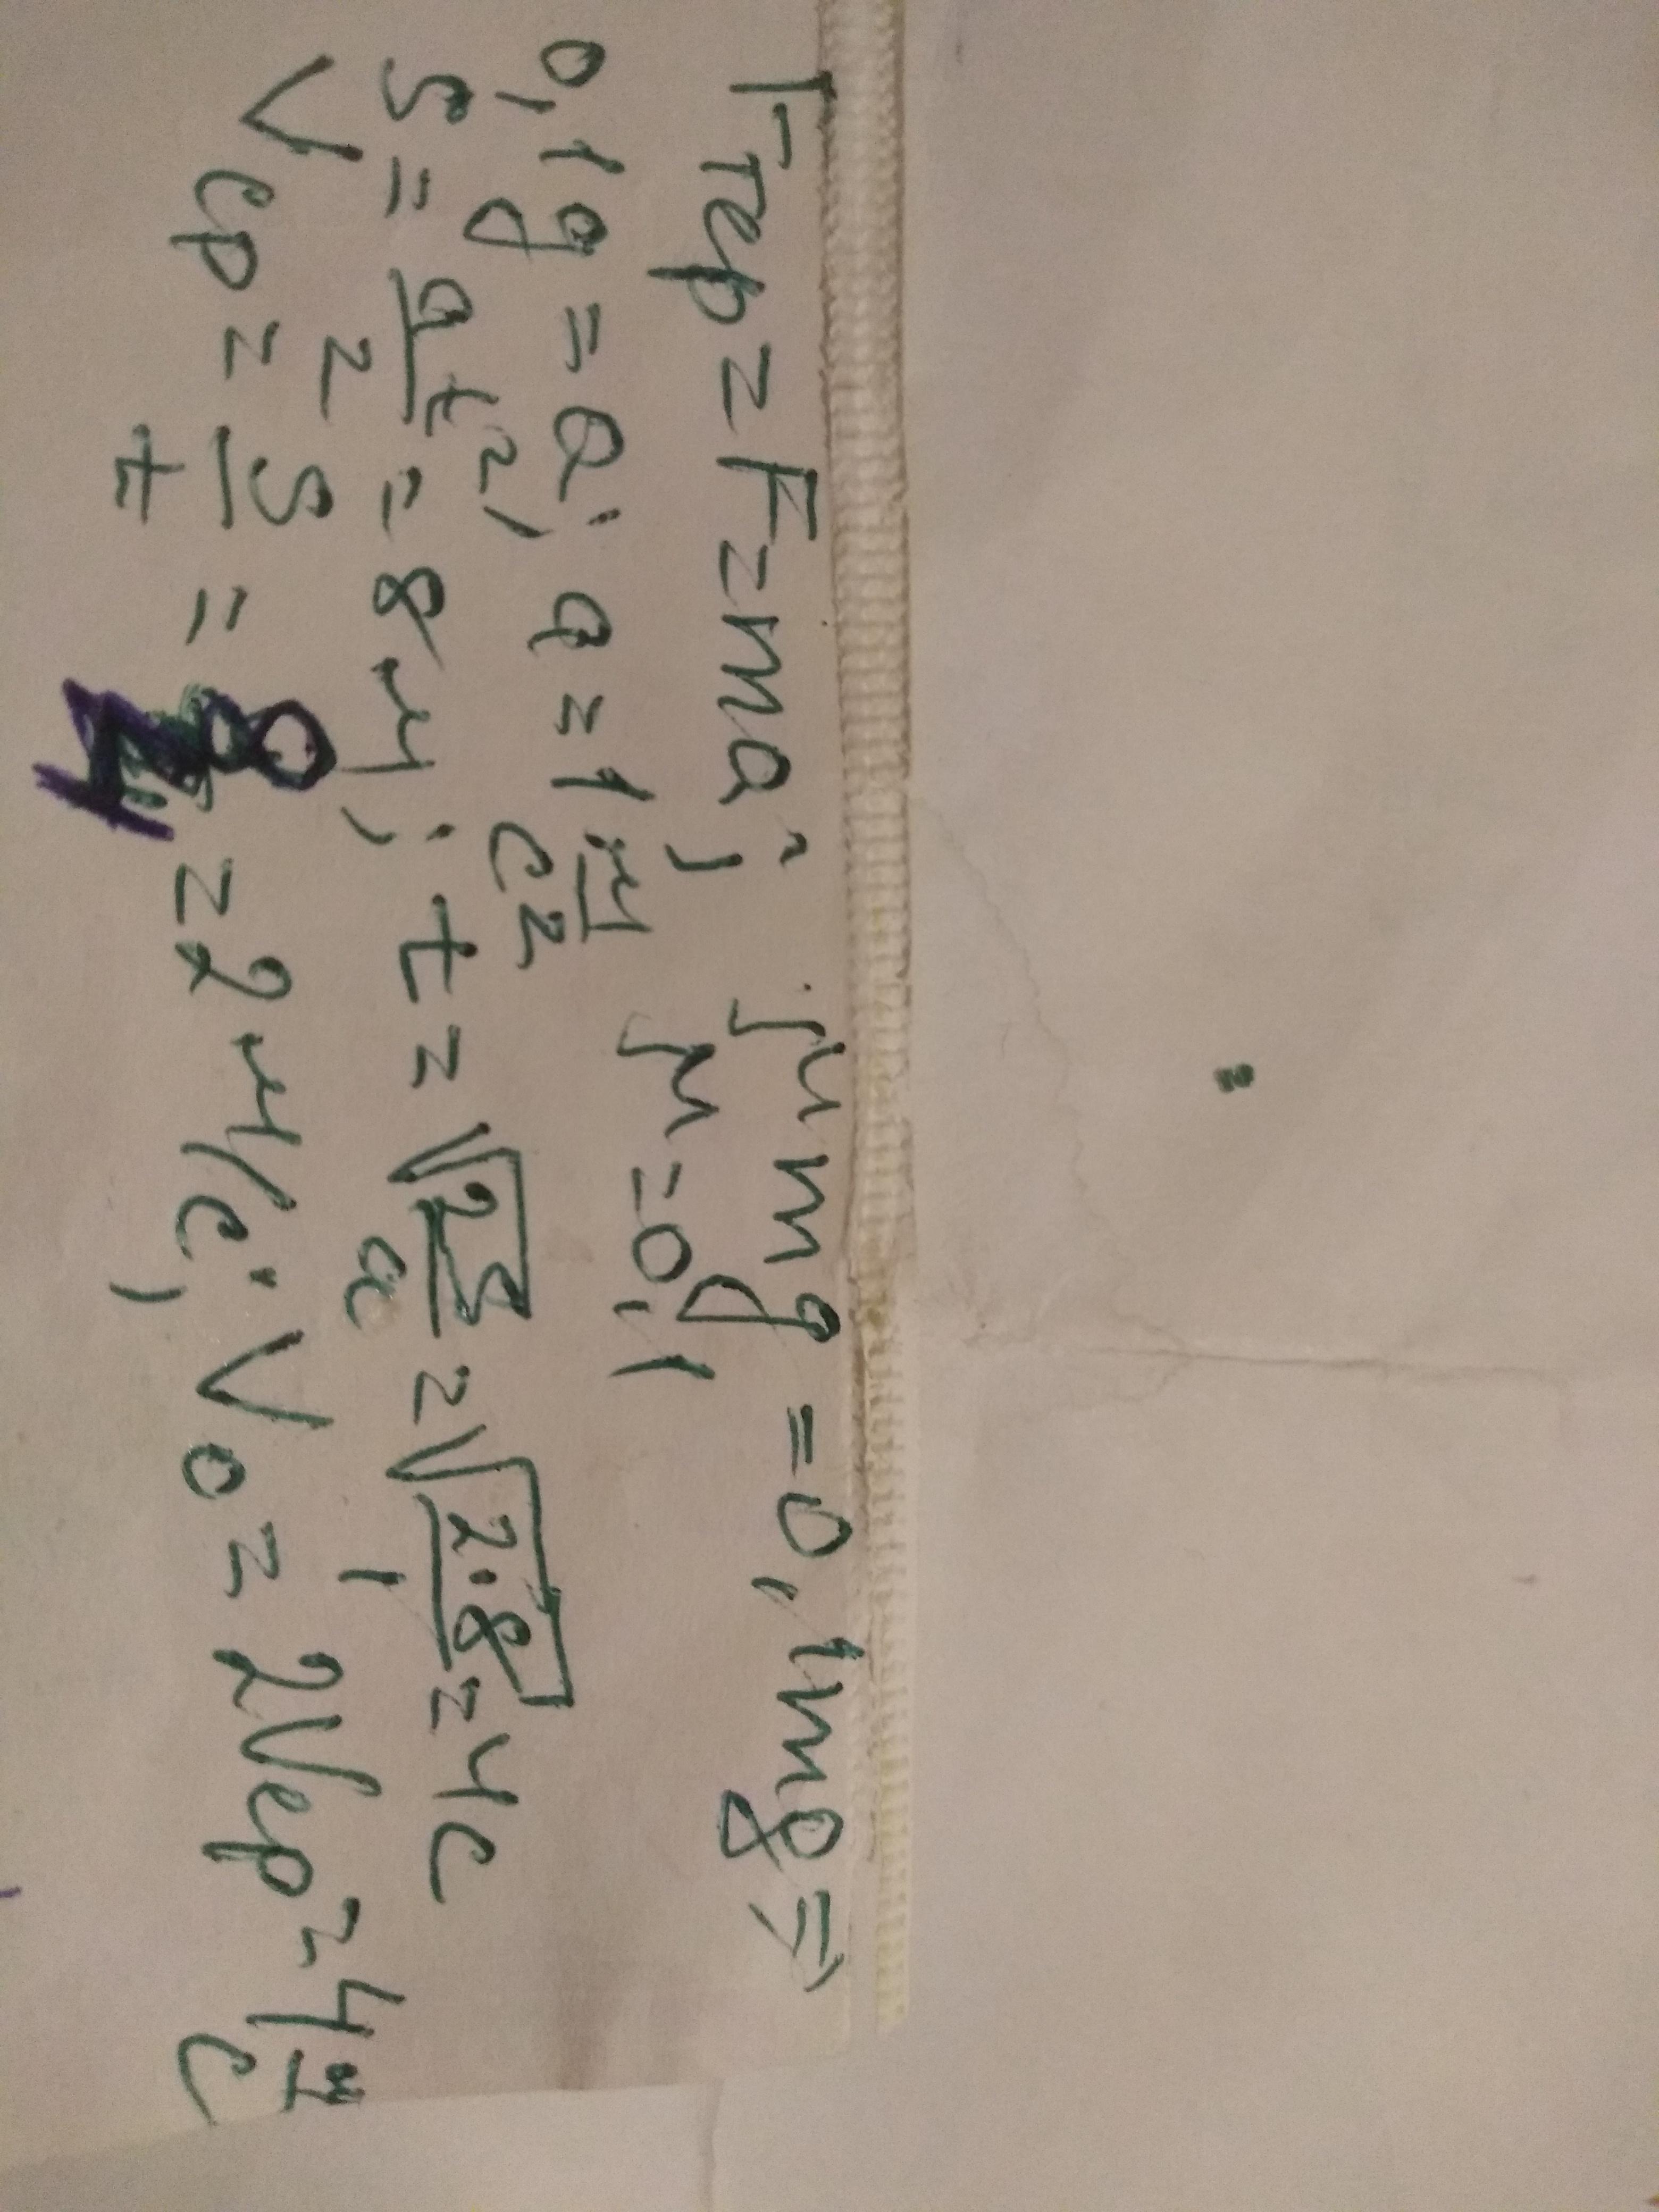 Fтер = F = ma; μmg = 0,1mg ⇒
μ = 0,1
0,1g = a; a = 1 м/с²
S = at²/2 = 8 м; t = √(2S/a) = √(2·8/1) = 4c
Vср = S/t = 8/4 = 2 м/с; V₀ = 2Vср = 4 м/с